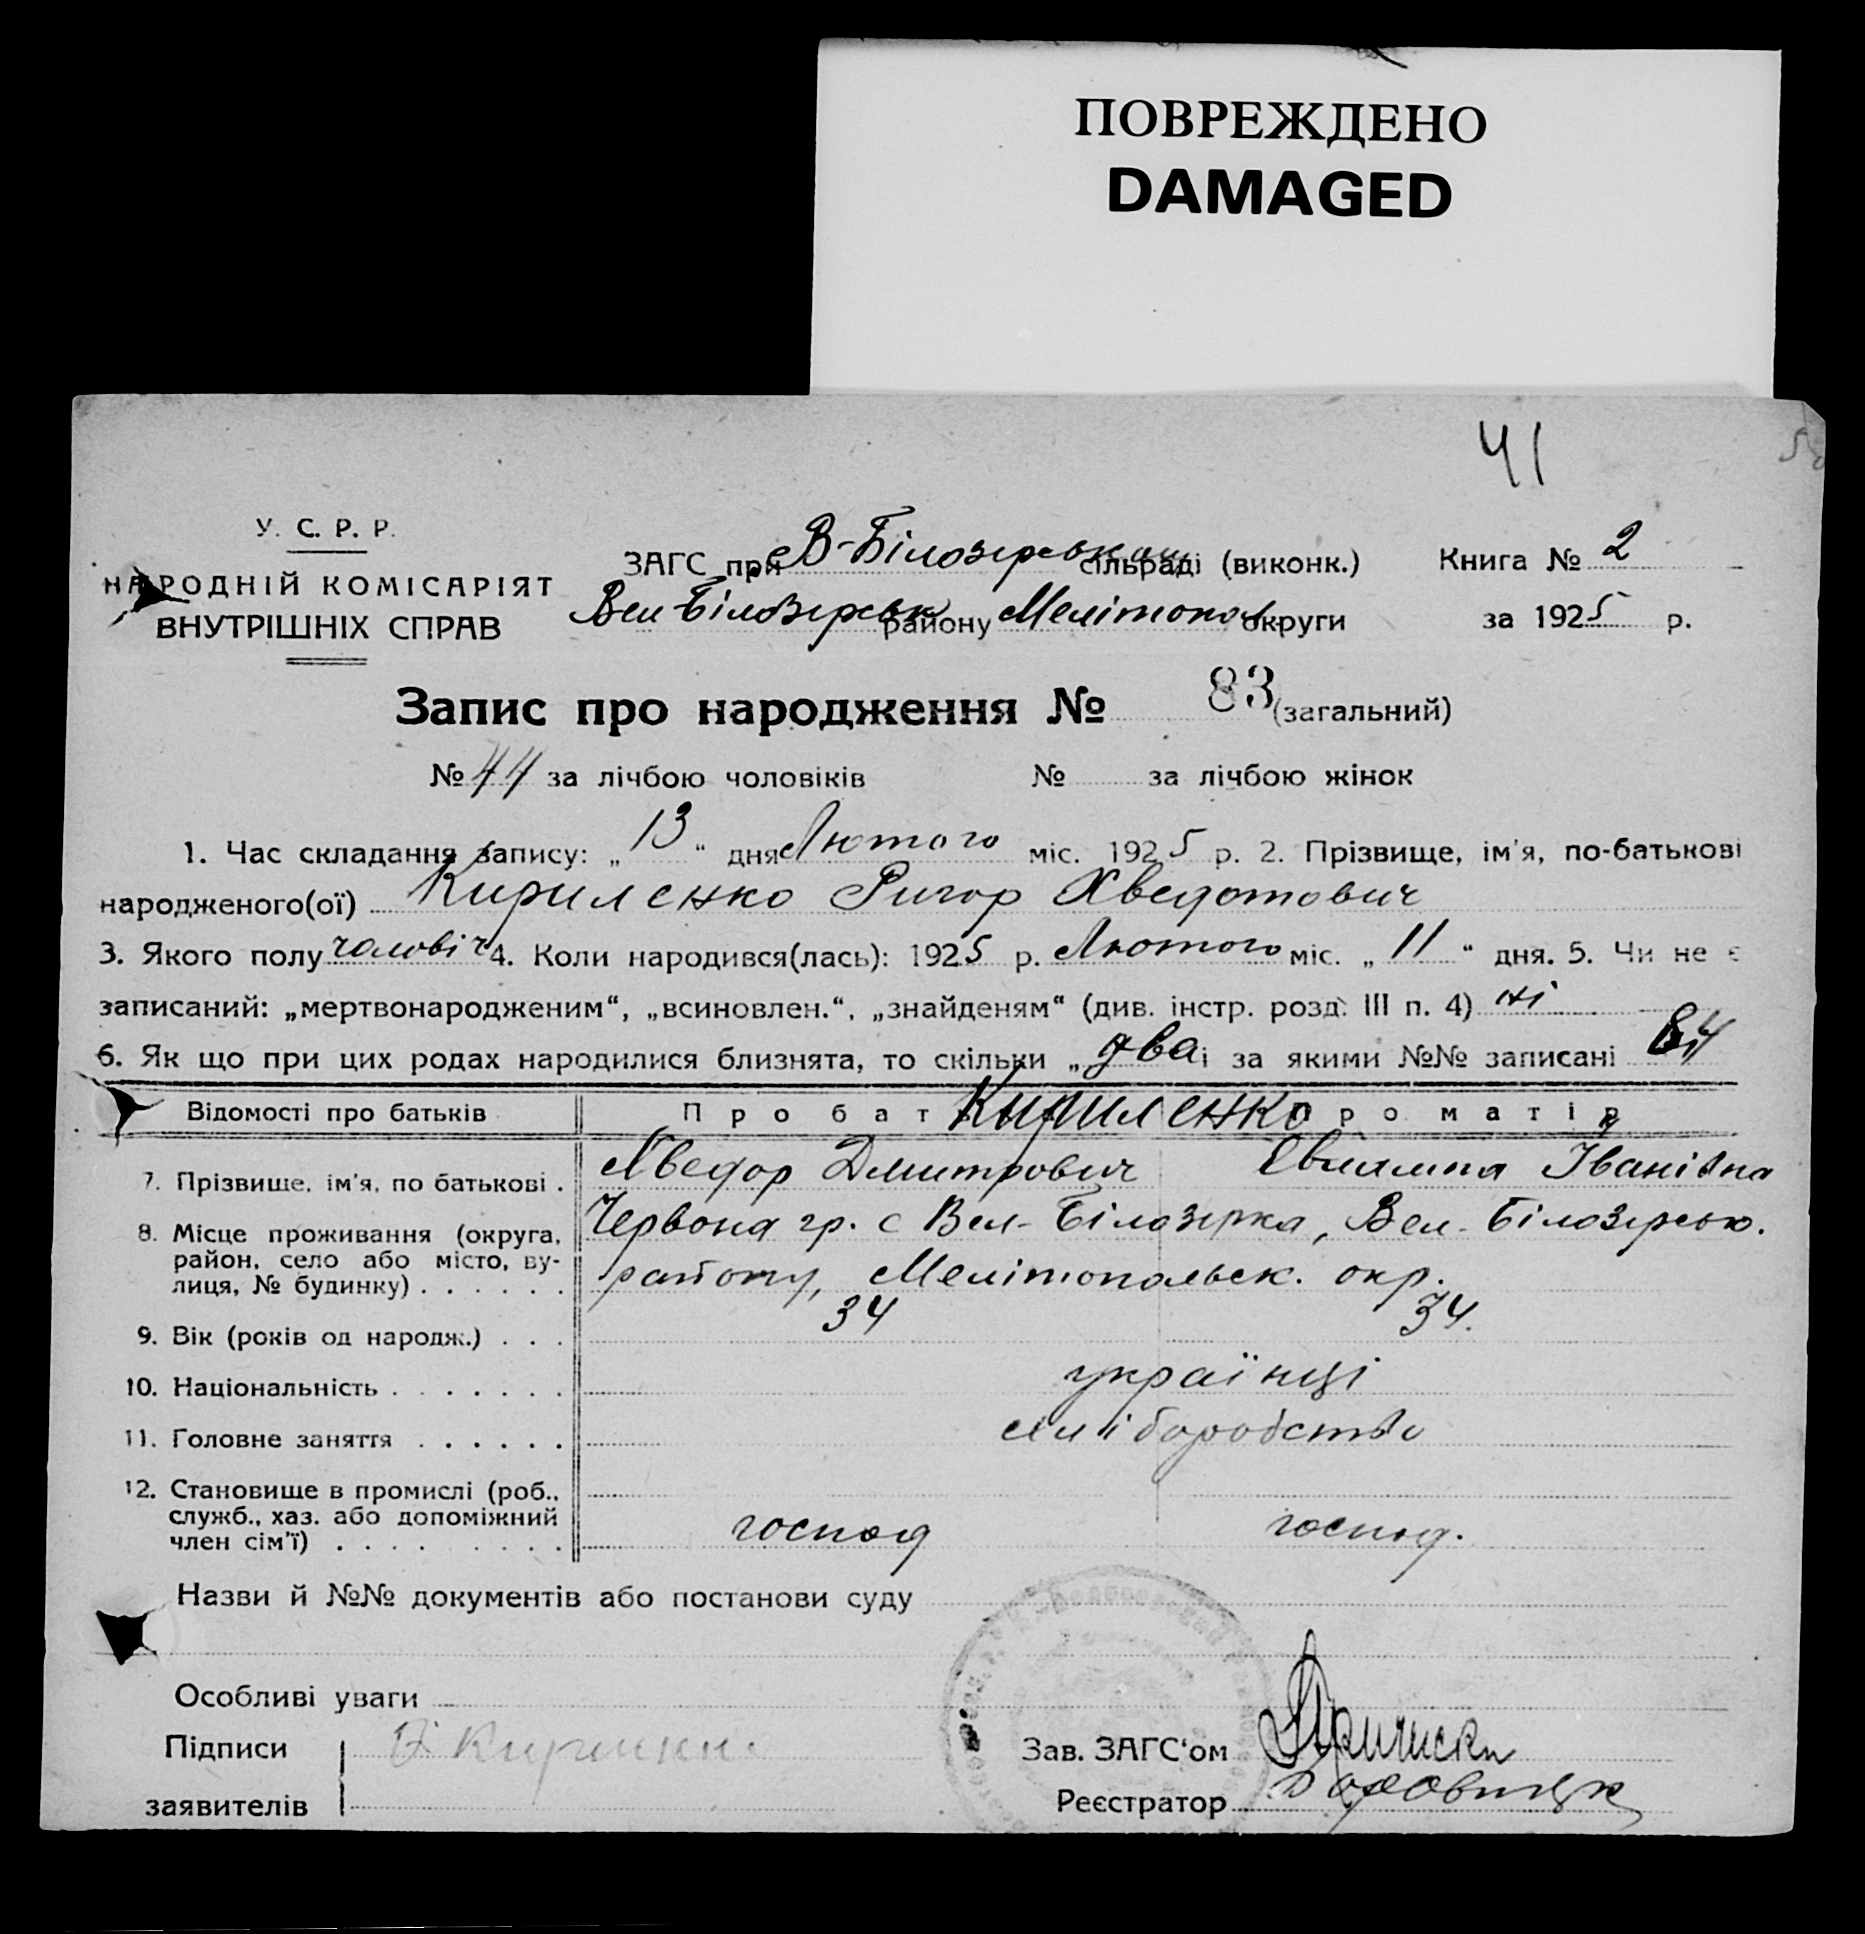 ПОВРЕЖДЕНО
DAMAGED
41
У. С. Р. Р.
НАРОДНІЙ КОМІСАРІЯТ
ВНУТРІШНІХ СПРАВ
ЗАГС при В-Білозерськом сільраді (виконк.) Книга № 2
Вел Білозерськ району Мелітопол. округи за 1925 р.
Запис про народження № 83 (загальний)
№ 44 за лічбою чоловіків № за лічбою жінок
1. Час складання запису: „13“ дня Лютого міс. 1925 р. 2. Прізвище, ім'я, по-батькові
народженого(ої) Кириленко Ригор Хведотович
3. Якого полу чоловіч 4. Коли народився(лась): 1925 р. Лютого міс. „11“ дня. 5. Чи не є
записаний: „мертвонародженим“, „всиновлен.“, „знайденям“ (див. інстр. розд. III п. 4) ні
6. Як що при цих родах народилися близнята, то скільки „два і за якими №№ записані 84
Відомості про батьків Про бать Кириленко Про матір
7. Прізвище, ім'я, по батькові . Хведор Дмитрович Іванівна
8. Місце проживання (округа, Червона гр. с Вел-Білозерка, Вел-Білозерською.
район, село або місто, ву- району, Мелітопольск. окр.
лиця, № будинку) . . . . . .
9. Вік (років од народж.) . . . 34 34.
10. Національність . . . . . . . українці
11. Головне заняття . . . . . . хліборобство
12. Становище в промислі (роб.,
служб., хаз. або допоміжний
член сім'ї) . . . . . . . . . господ господ.
Назви й №№ документів або постанови суду
Особливі уваги
Підписи
Зав. ЗАГС'ом
заявителів
Реєстратор